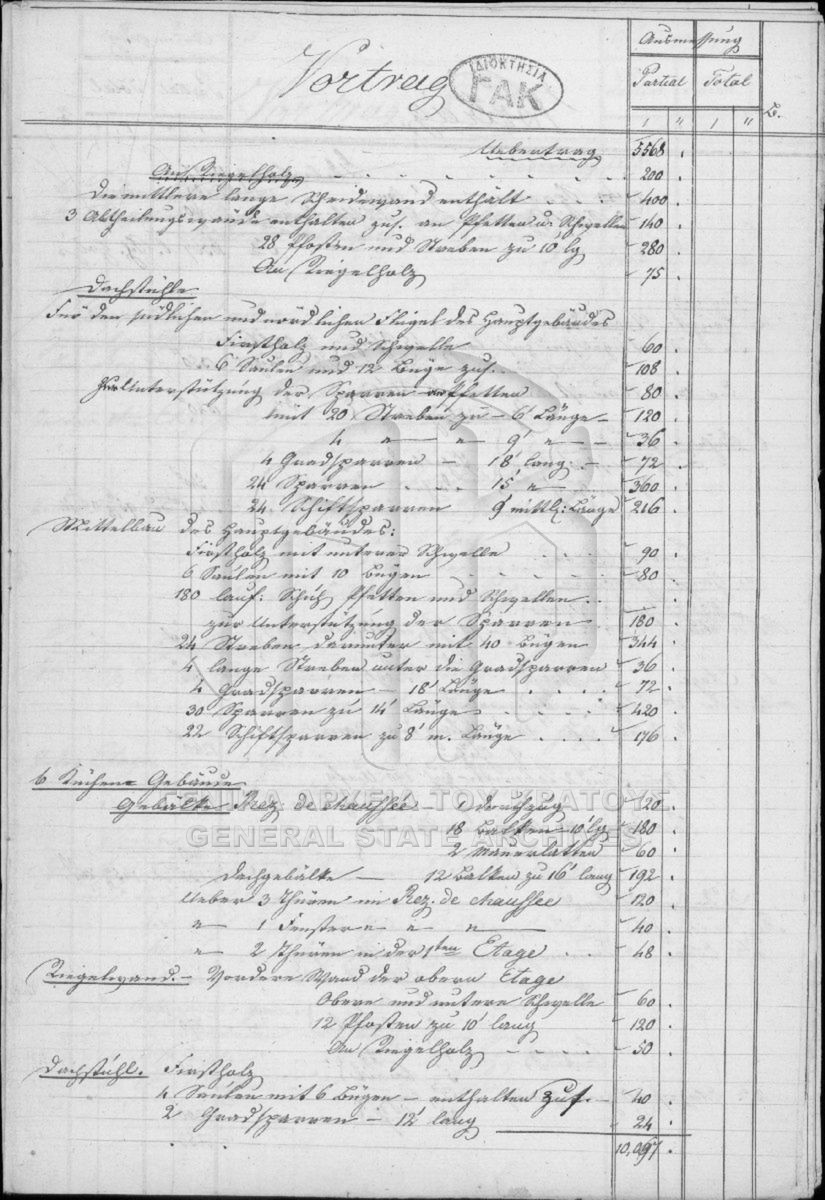 Ausmessung
Vortrag
ΙΔΙΟΚΤΗΣΙΑ
ΓΑΚ
Partial Total
1 " 1 " B.
Uebertrag 5568
An Riegelholz 200
Die mittlere lange Scheidewand enthält 400
3 Abtheilungswände enthalten zus. an Pfetten u. Schwellen 140
28 Pfosten und Streben zu 10' lg 280
An Riegelholz 75
Dachstühle
Für den südlichen und nördlichen Flügel des Hauptgebäudes
Firstholz und Schwelle 60
6 Saulen und 12 Büge zus. 108
Zur Unterstützung der Sparren an Pfetten 80
mit 20 Streben zu 6' Länge 120
4 " " 9' " 36
4 Gradsparren 18' lang 72
24 Sparren 15' " 360
24 Schiftsparren 9' mittl: Länge 216
Mittelbau des Hauptgebäudes:
Firstholz mit unterer Schwelle 90
6 Saulen mit 10 Bügen 80
180 lauf: Schuh Pfetten und Schwellen
zur Unterstützung der Sparren 180
24 Streben darunter mit 40 Bügen 344
4 lange Streben unter die Gradsparren 36
4 Gradsparren – 18' Länge 72
30 Sparren zu 14' Länge 420
22 Schiftsparren zu 8' m. Länge 176
6 Küchen Gebäude
Gebälke Rez de chaussée – 20
ΓΕΝΙΚΑ ΑΡΧΕΙΑ ΤΟΥ ΚΡΑΤΟΥΣ
18 Balken 10' lg 180
GENERAL STATE ARCHIVES
2 Mauerlatten 60
Dachgebälke – 12 Balken zu 16' lang 192
Ueber 3 Thüren im Rez. de chaussée 120
" 1 Fenster " " " 40
" 2 Thüren in der 1ten Etage 48
Riegelwand. – Vordere Wand der obern Etage
Obere und untere Schwelle 60
12 Pfosten zu 10' lang 120
An Riegelholz 50
Dachstuhl. Firstholz
4 Saulen mit 6 Bügen – enthalten zus. – 40
2 Gradsparren – 12' lang 24
10,097